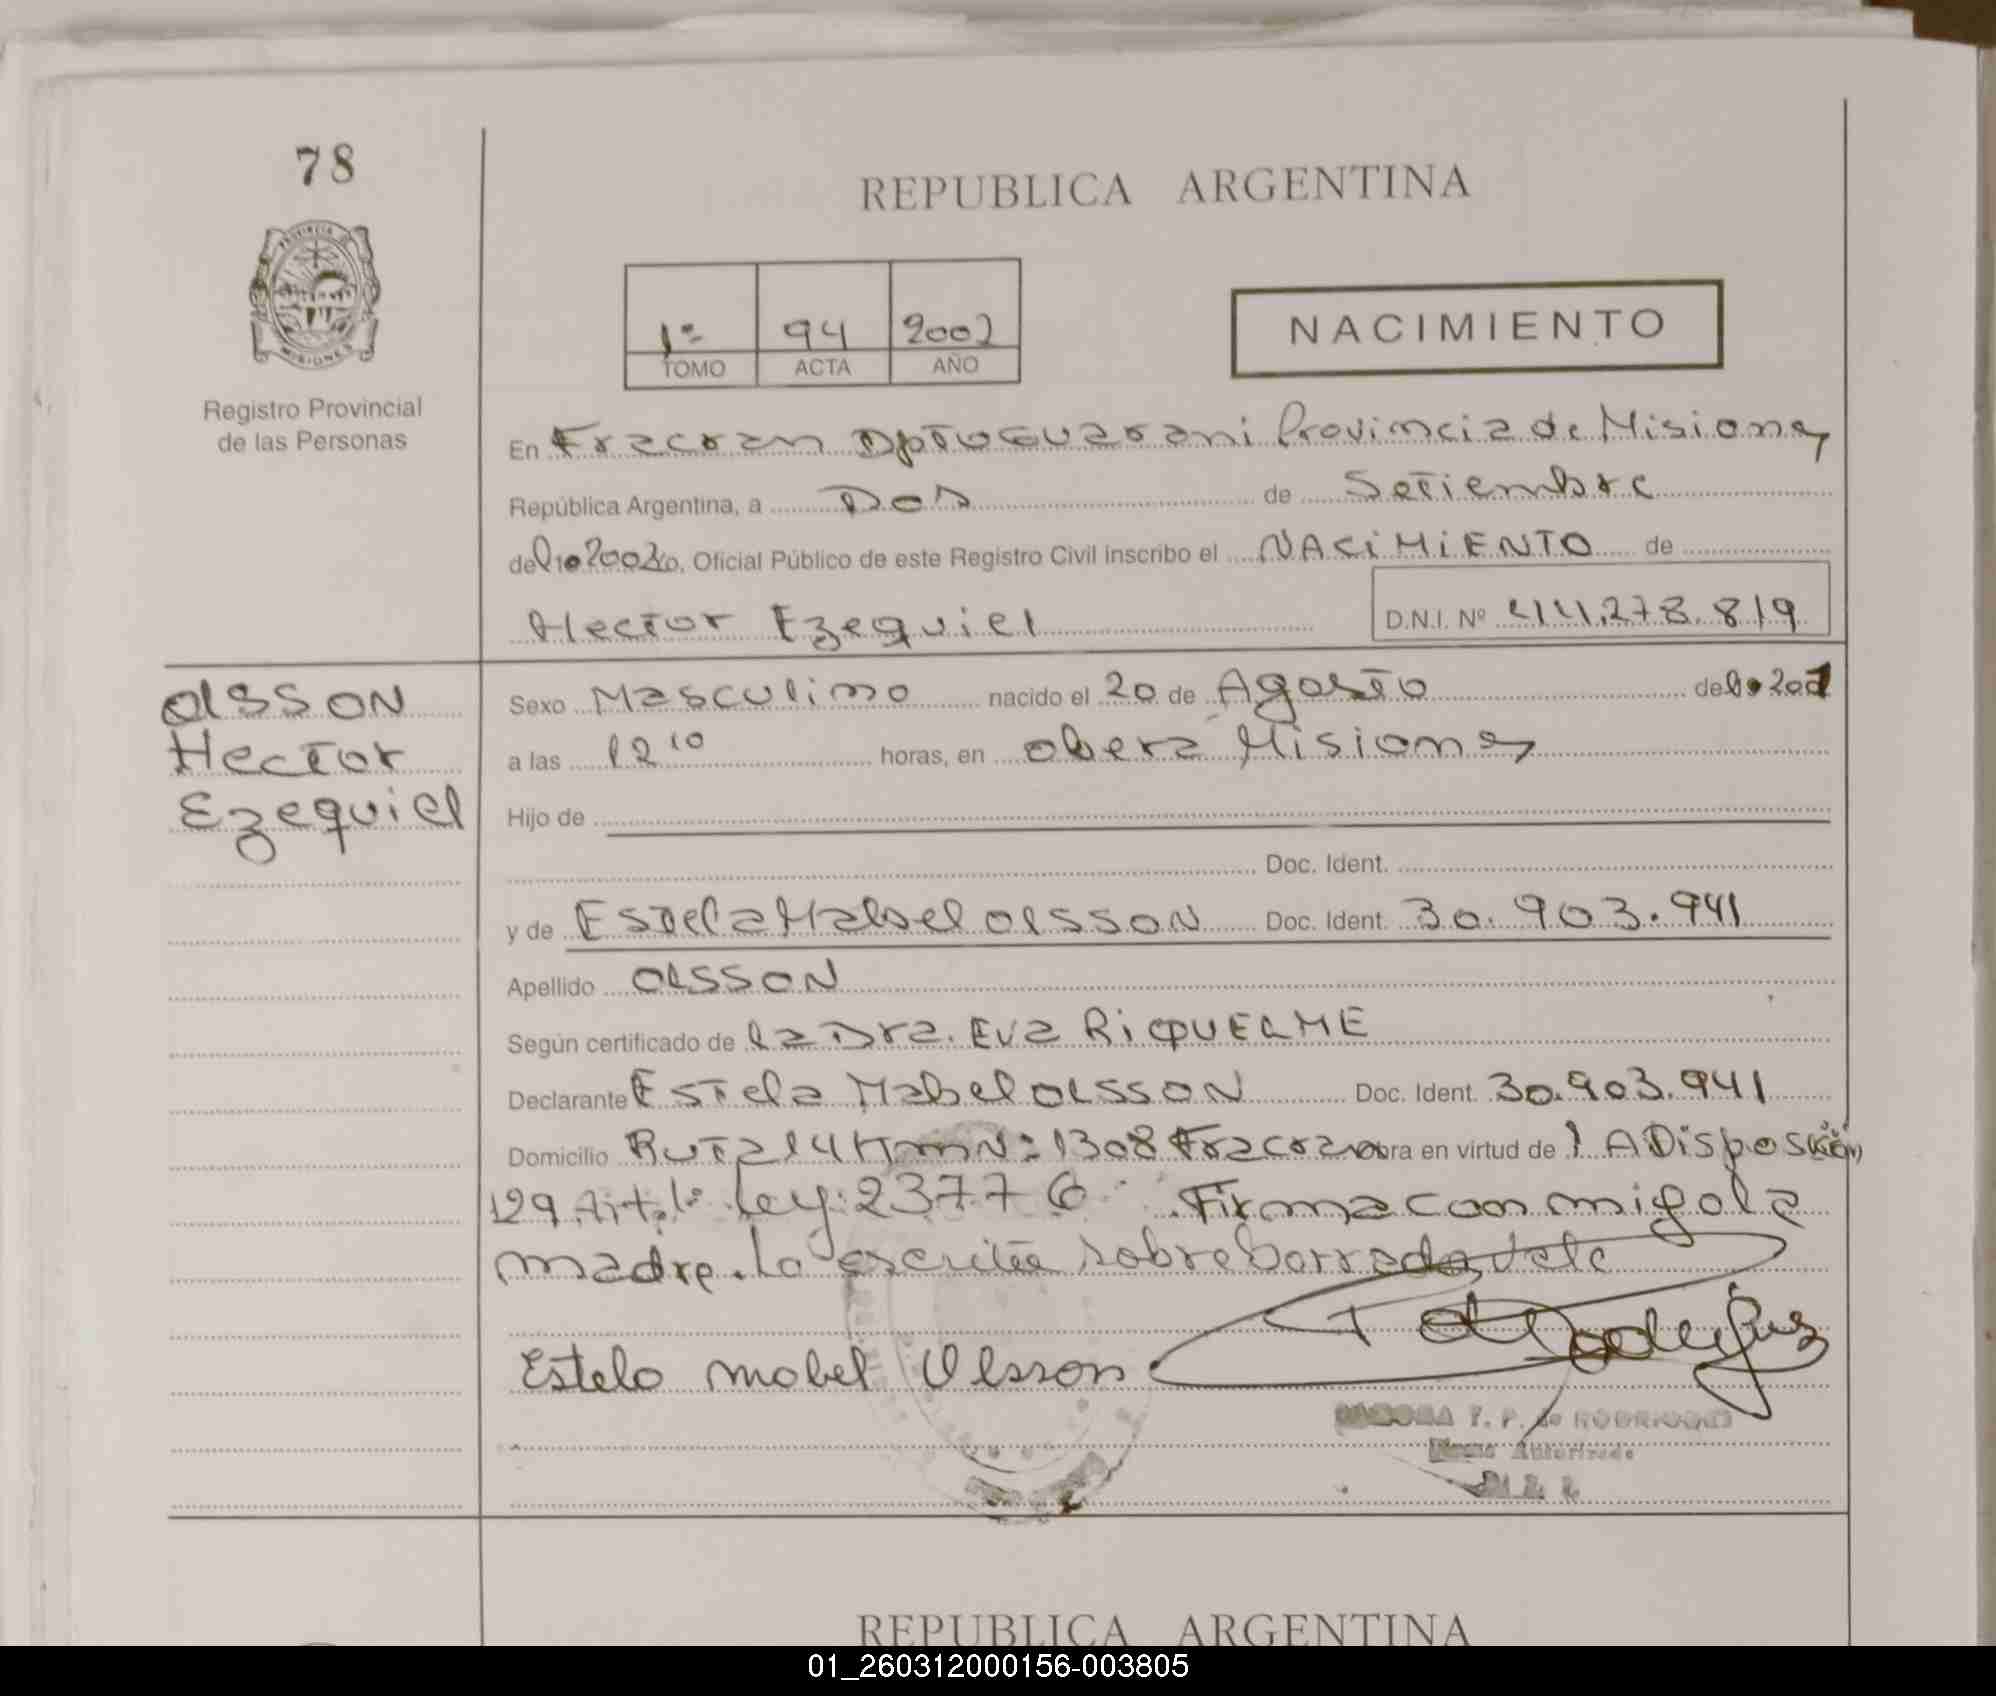 78
REPUBLICA ARGENTINA
1º 94 2002
TOMO ACTA AÑO
NACIMIENTO
PROVINCIA
MISIONES
Registro Provincial
de las Personas
En Fracran Dpto Guarani Provincia de Misiones
República Argentina, a Dos de Setiembre
del 2002 yo, Oficial Público de este Registro Civil inscribo el NACIMIENTO de
Hector Ezequiel D.N.I. Nº 44.278.819
OLSSON
Hector
Ezequiel
Sexo Masculino nacido el 20 de Agosto de
a las 12 10 horas, en Obera Misiones
Hijo de
Doc. Ident.
y de Estela Mabel OLSSON Doc. Ident. 30.903.941
Apellido OLSSON
Según certificado de la Dra. Eva RiQUELME
Declarante Estela Mabel OLSSON Doc. Ident. 30.903.941
Domicilio Ruta 14 Km Nº 1308 Fracran obra en virtud de l A Disposición
129 Art. 1º Ley: 23776 Firma conmigo la
madre. Lo escrito sobreborrado, vale
Estela Mabel Olsson
T. P. de RODRIGUEZ
Firma Autorizada
REPUBLICA ARGENTINA
01_260312000156-003805